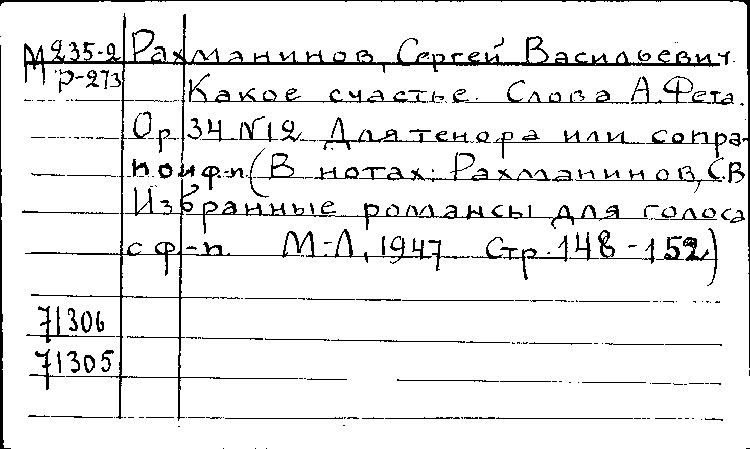 М235-2 Рахманинов, Сергей Васильевич.
Р-273
Какое счастье. Слова А.Фета.
Ор 34 N12 Для тенора или сопра-
но и ф-п (В нотах: Рахманинов, С.В
Избранные романсы для голоса
с ф-п. М-Л, 1947 Стр. 148-152)
71306
71305